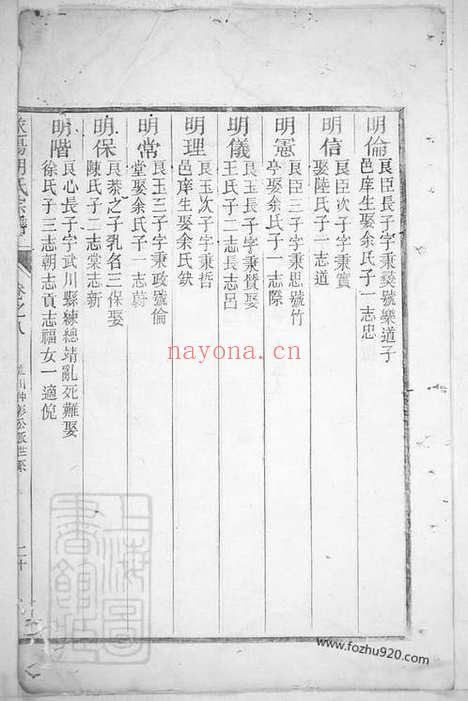 明倫
良臣長子字秉彝號樂道子
邑庠生娶余氏子一志忠
明信
良臣次子字秉實
娶陸氏子一志道
明憲
良臣三子字秉思號竹
亭娶余氏子一志際
明儀
良玉長子字秉贊娶
王氏子二志長志呂
明理
良玉次子字秉哲
邑庠生娶余氏缺
明常
良玉三子字秉政號倫
堂娶余氏子一志蔚
明保
良泰之子乳名三保娶
陳氏子二志棠志新
明階
良心長子字武川縣練總靖亂死難娶
徐氏子三志朝志貢志福女一適倪
胡氏宗譜
卷之八
二十
上海圖書館藏
nayona.cn
www.fozhu920.com